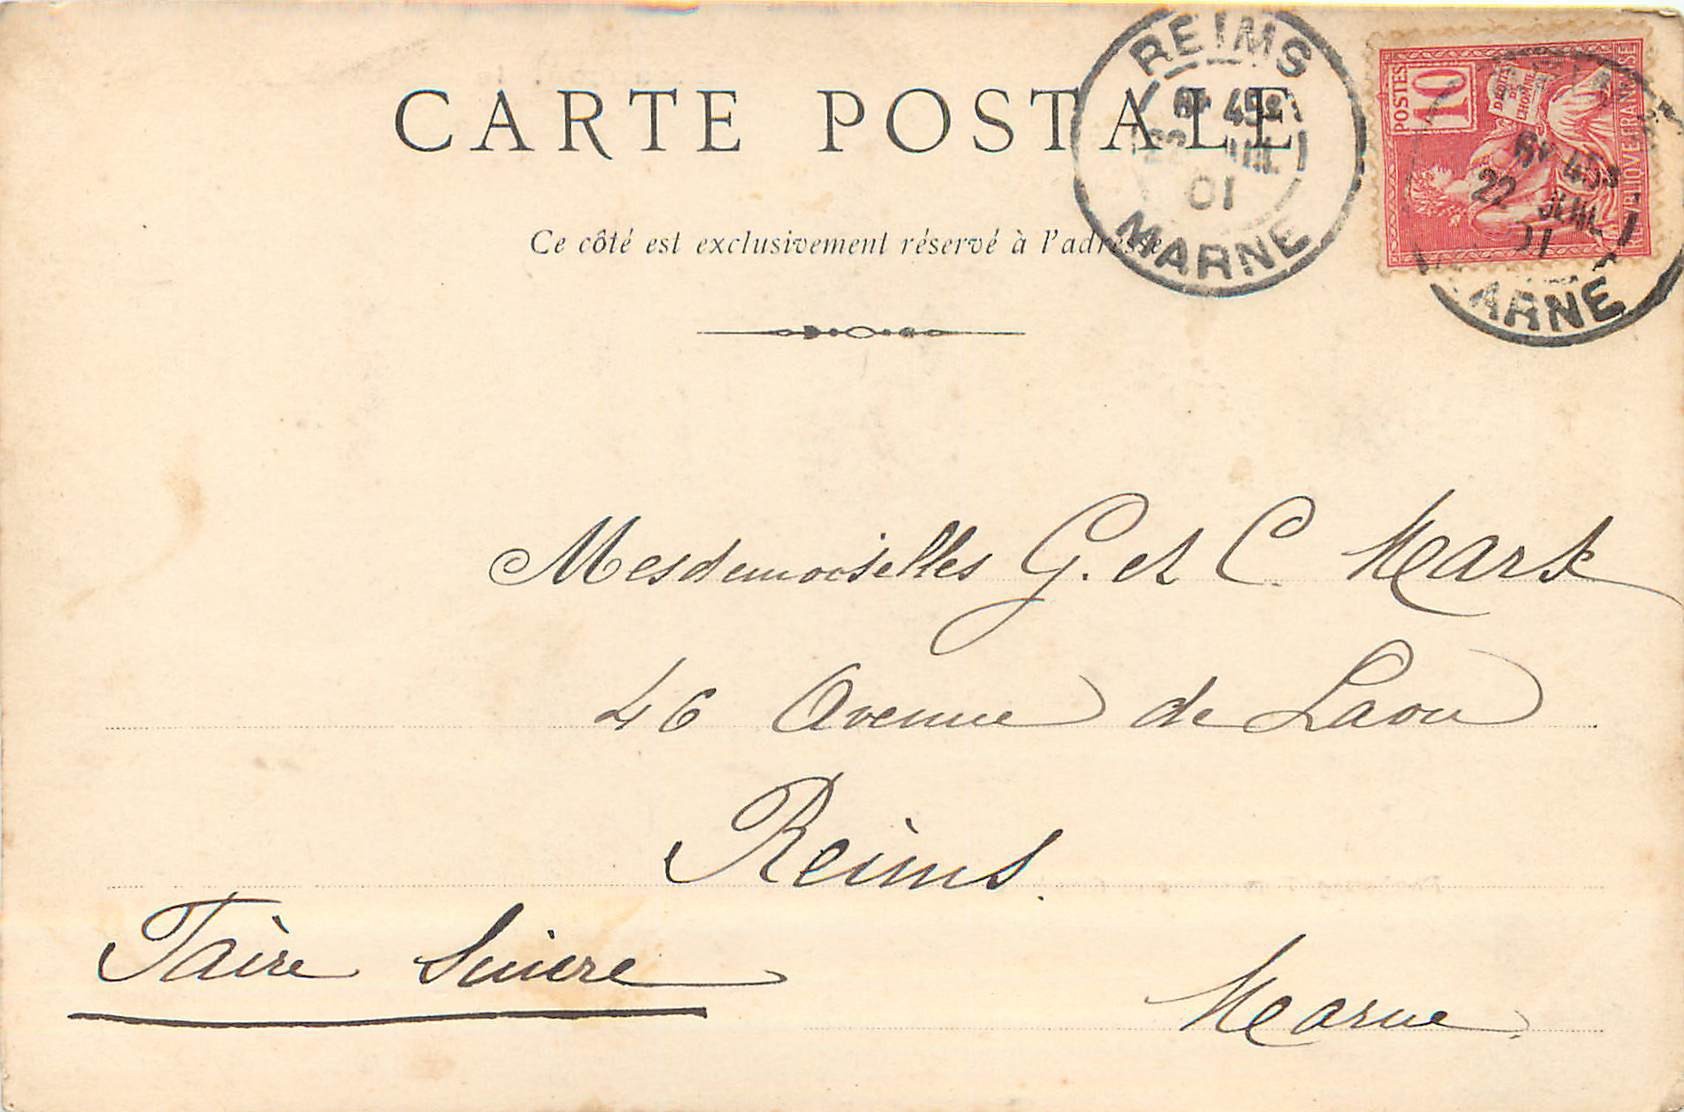 CARTE POSTALE
Ce côté est exclusivement réservé à l'adresse
REIMS
6E 45S
22 JUIL
01
MARNE
POSTES
10
DROITS
DE
L'HOMME
REPUBLIQUE FRANÇAISE
22 JUIL
01
MARNE
Mesdemoiselles G. et C. Mark
46 Avenue de Laon
Reims.
Faire Suivre
Marne